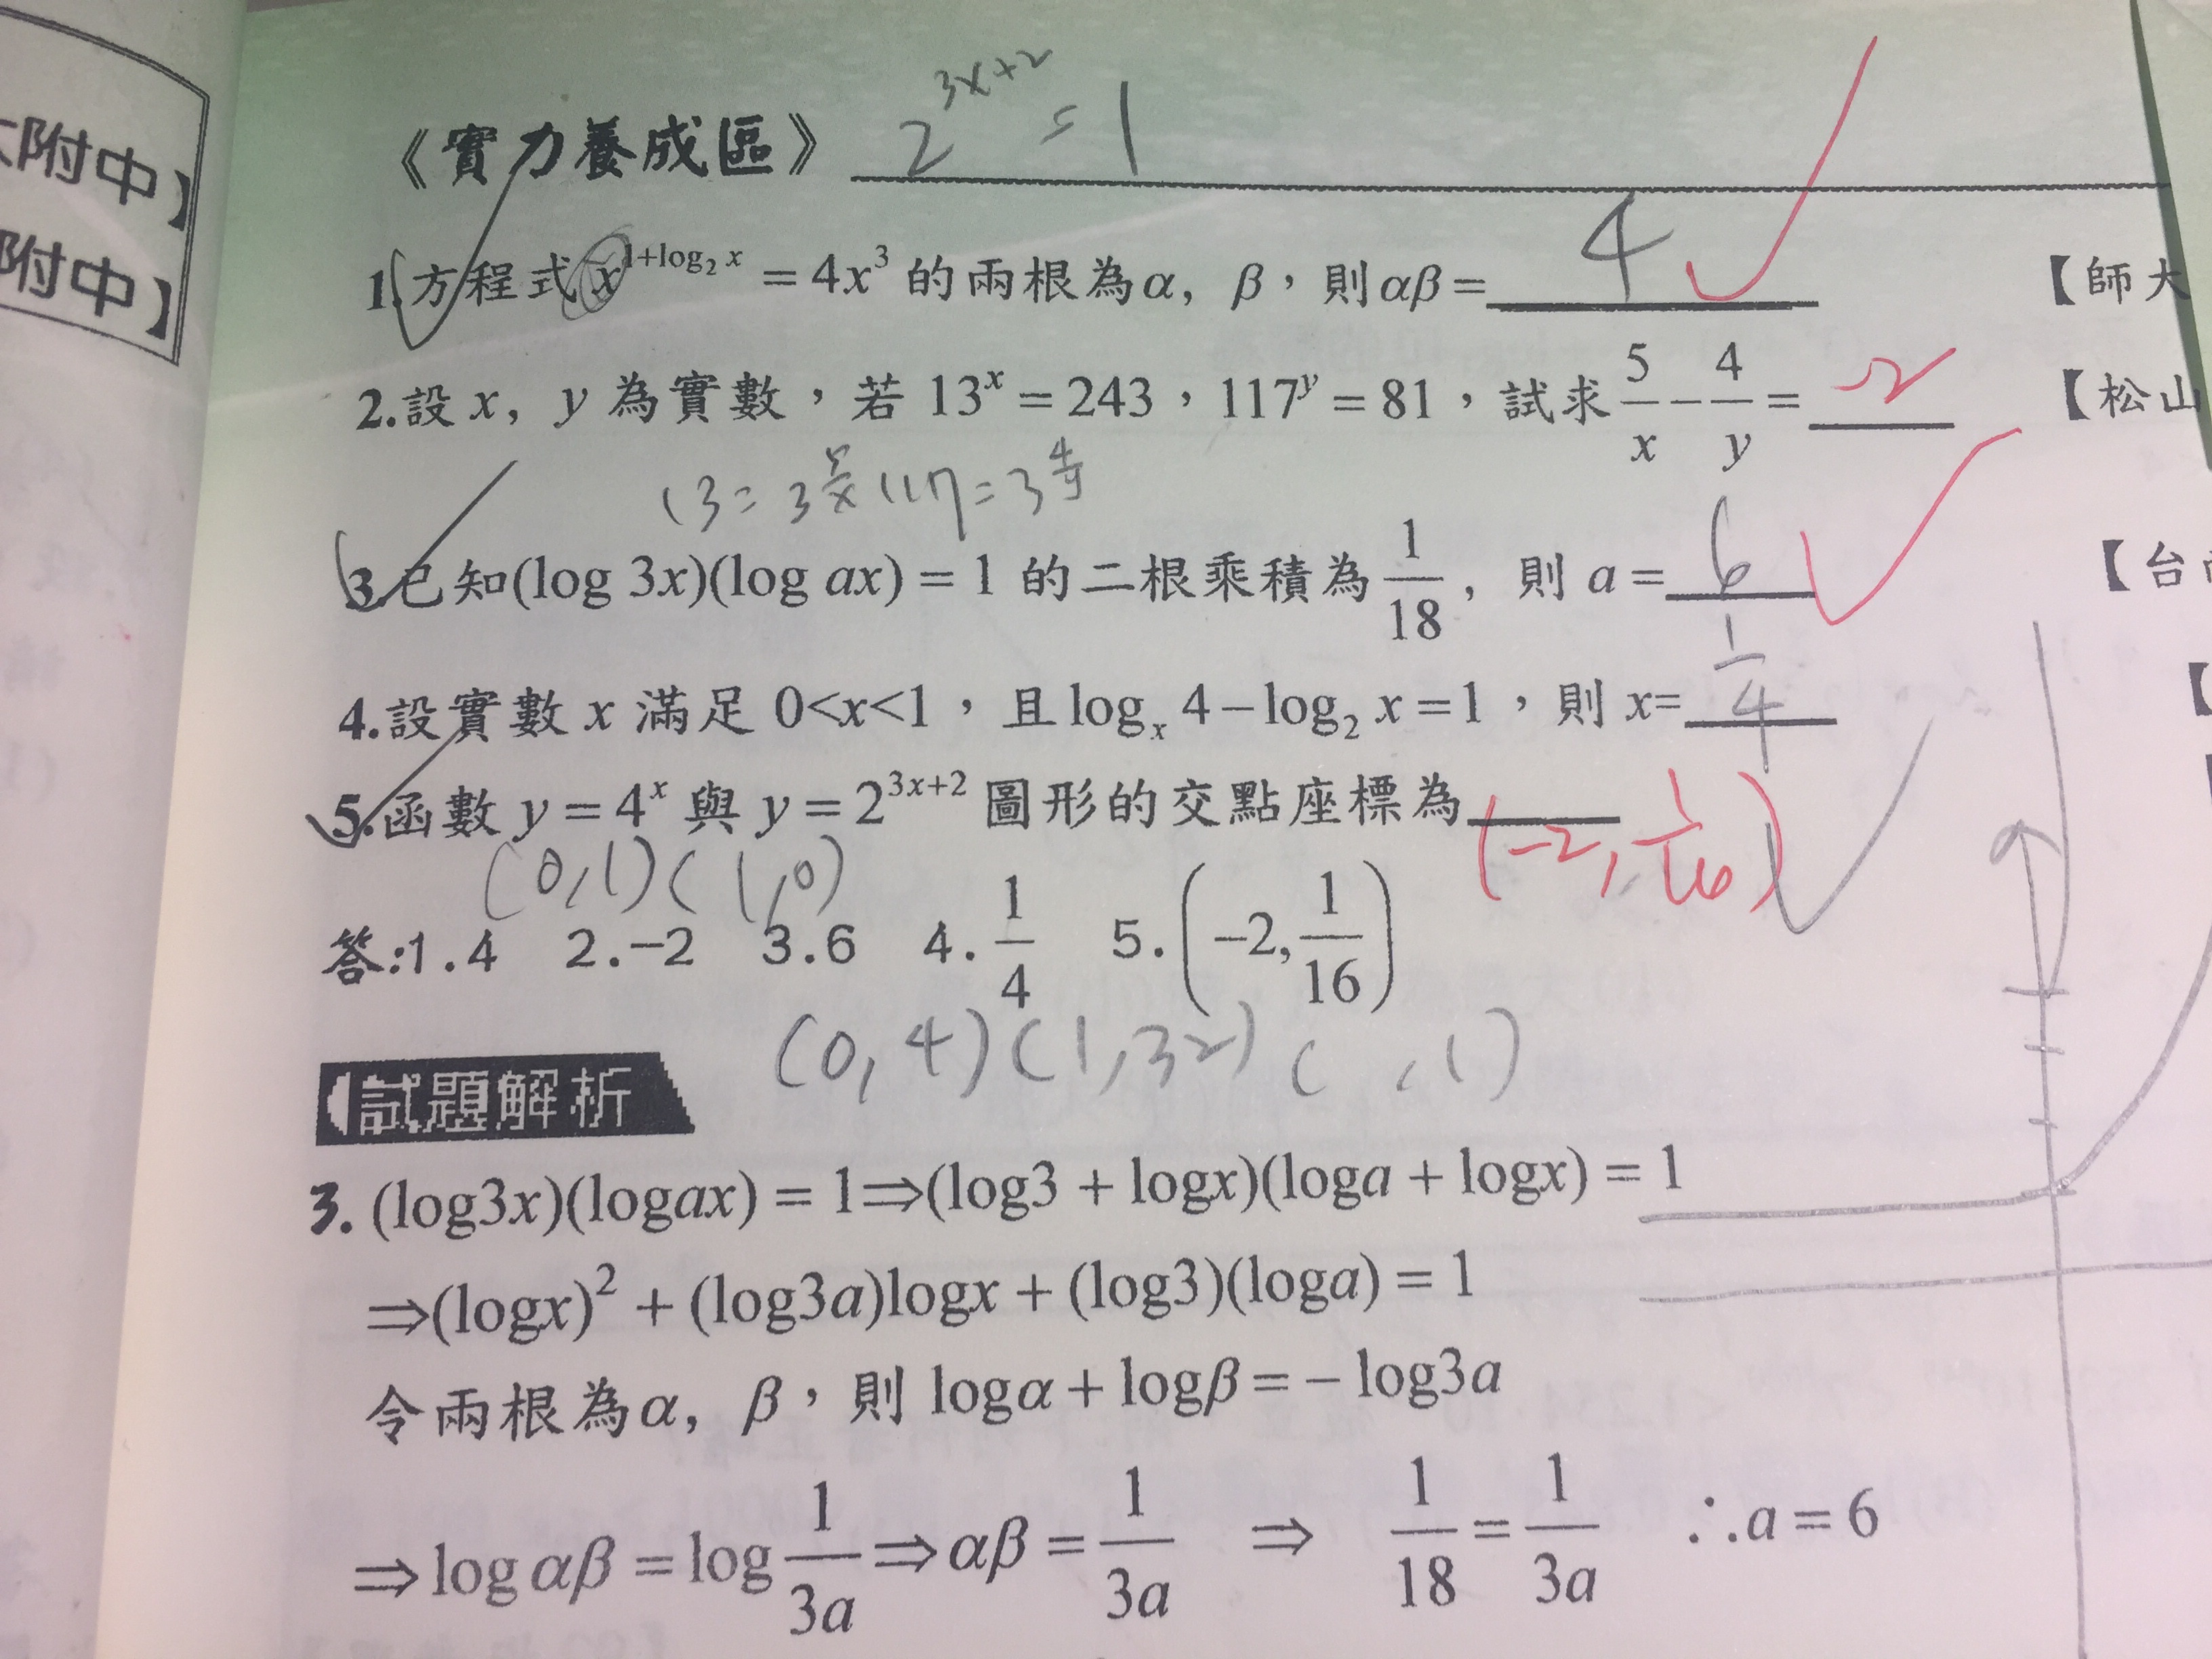 附中】
附中】
2^{3x+2} = 1
《實力養成區》
1.方程式 x^{1+log₂x} = 4x³ 的兩根為α, β，則αβ= 4 【師大
2.設 x, y 為實數，若 13^x = 243，117^y = 81，試求 5/x − 4/y = -2 【松山
13 = 3^{5/x} 117 = 3^{4/y}
3.已知(log 3x)(log ax) = 1 的二根乘積為 1/18，則 a = 6 【台
4.設實數 x 滿足 0<x<1，且 log_x 4 − log₂ x = 1，則 x= 1/4 【
5.函數 y = 4^x 與 y = 2^{3x+2} 圖形的交點座標為 (-2, 1/16)
(0,1) (1,0)
答:1.4 2.−2 3.6 4. 1/4 5. (−2, 1/16)
(0,4) (1,32) ( ,1)
試題解析
3. (log3x)(logax) = 1⇒(log3 + logx)(loga + logx) = 1
⇒(logx)² + (log3a)logx + (log3)(loga) = 1
令兩根為α, β，則 logα + logβ = − log3a
⇒logαβ = log 1/3a ⇒αβ = 1/3a ⇒ 1/18 = 1/3a ∴a = 6